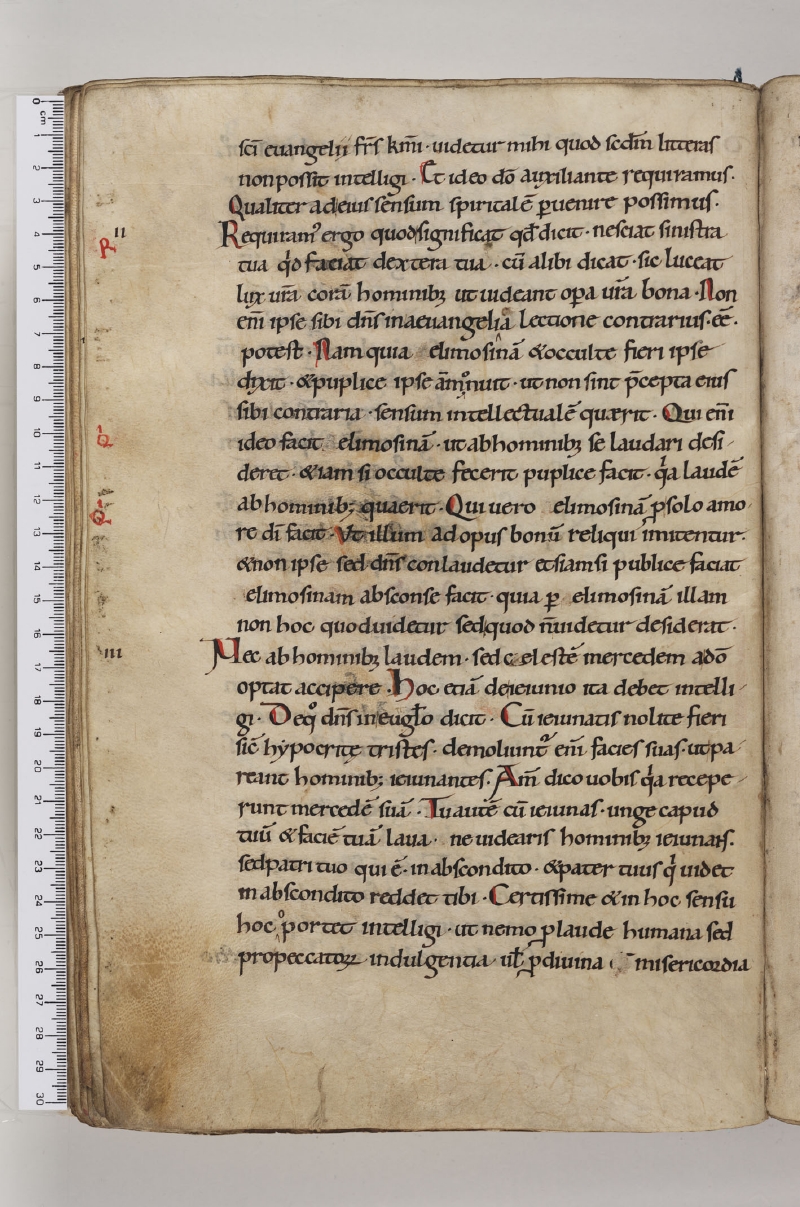 sc̄i euangelii fr̄s km̄i · uidetur mihi quod secdm̄ litteras
non possit intelligi · Et ideo dō auxiliante requiramus.
Qualiter ad eius sensum spiritalē ꝑuenire possimus.
II
R
Requiram᾽ ergo quod significat qd̄ dicit · nesciat sinistra
tua qd̄ faciat dextera tua · cū alibi dicat · sic luceat
lux ur̄a corā hominibꝫ ut uideant oꝑa ur̄a bona · Non
eni̅ ipse sibi dn̄s in aeuangelia lectione contrarius · ee̅ ·
potest · Nam quia elimosinā & occulte fieri ipse
dixit · & puplice ipse ām̊nuit · ut non sint p̄cepta eius
sibi contraria · sensum intellectualē quęrit · Qui eni̅
Q
ideo facit elimosinā · ut ab hominibꝫ se laudari desi
deret · & iam si occulte fecerit puplice facit · qͣa laudē
ab hominibꝫ quaerit · Qui uero elimosinā ꝓ solo amo
Q
re dī facit · Vt illum ad opus bonū reliqui imitentur.
& non ipse sed dn̄s conlaudetur etsiamsi publice faciat
elimosinam absconse facit · quia ꝑ elimosinā illam
non hoc quod uidetur sed quod n̄ uidetur desiderat ·
III
Nec ab hominibꝫ laudem · sed cęlestē mercedem a dō
optat accipere · Hoc etiā de ieiunio ita debet intelli
gi · De qͦ dn̄s in eugl̄o dicit · Cū ieiunatis nolite fieri
sic̄ hypocritę tristes · demoliunt᾽ eni̅ facies suas · ut pa
reant hominibꝫ ieiunantes · Am̄ dico uobis qͣa recepe
runt mercedē suā · Tu autē cū ieiunas · unge capud
tuū & faciē tuā laua · ne uidearis hominibꝫ ieiunans.
sed patri tuo qui ē · in abscondito · & pater tuus qͥ uidet
in abscondito reddet tibi · Certissime & in hoc sensu
hoc oportet intelligi · ut nemo ꝓ laude humana sed
pro peccatoꝝ indulgentia · ul̄ ꝓ diuina misericordia